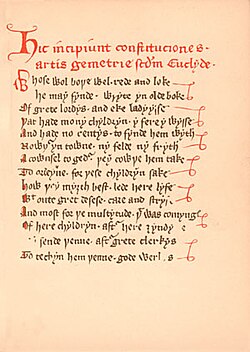 Hic incipiunt constituciones
artis gemetrie scdm Euclyde.
Whose wol bothe wel rede and loke
he may fynde wryte yn olde boke
Of grete lordys and eke ladyysse
Þat hade mony chyldryn y fere y wysse
And hade no rentys to fynde hem wyth
Nowþer yn towne ny felde ny fryth
A cownsel togeder þey cowþe hem take
To ordeyne for þese chyldryn sake
How þey myȝth best lede here lyfe
Wtoute gret desese care and stryf
And most for þe multytude þt was comyng
Of here chyldryn aftr here
sende þenne aftr grete clerkys
To techyn hem þenne gode werkys